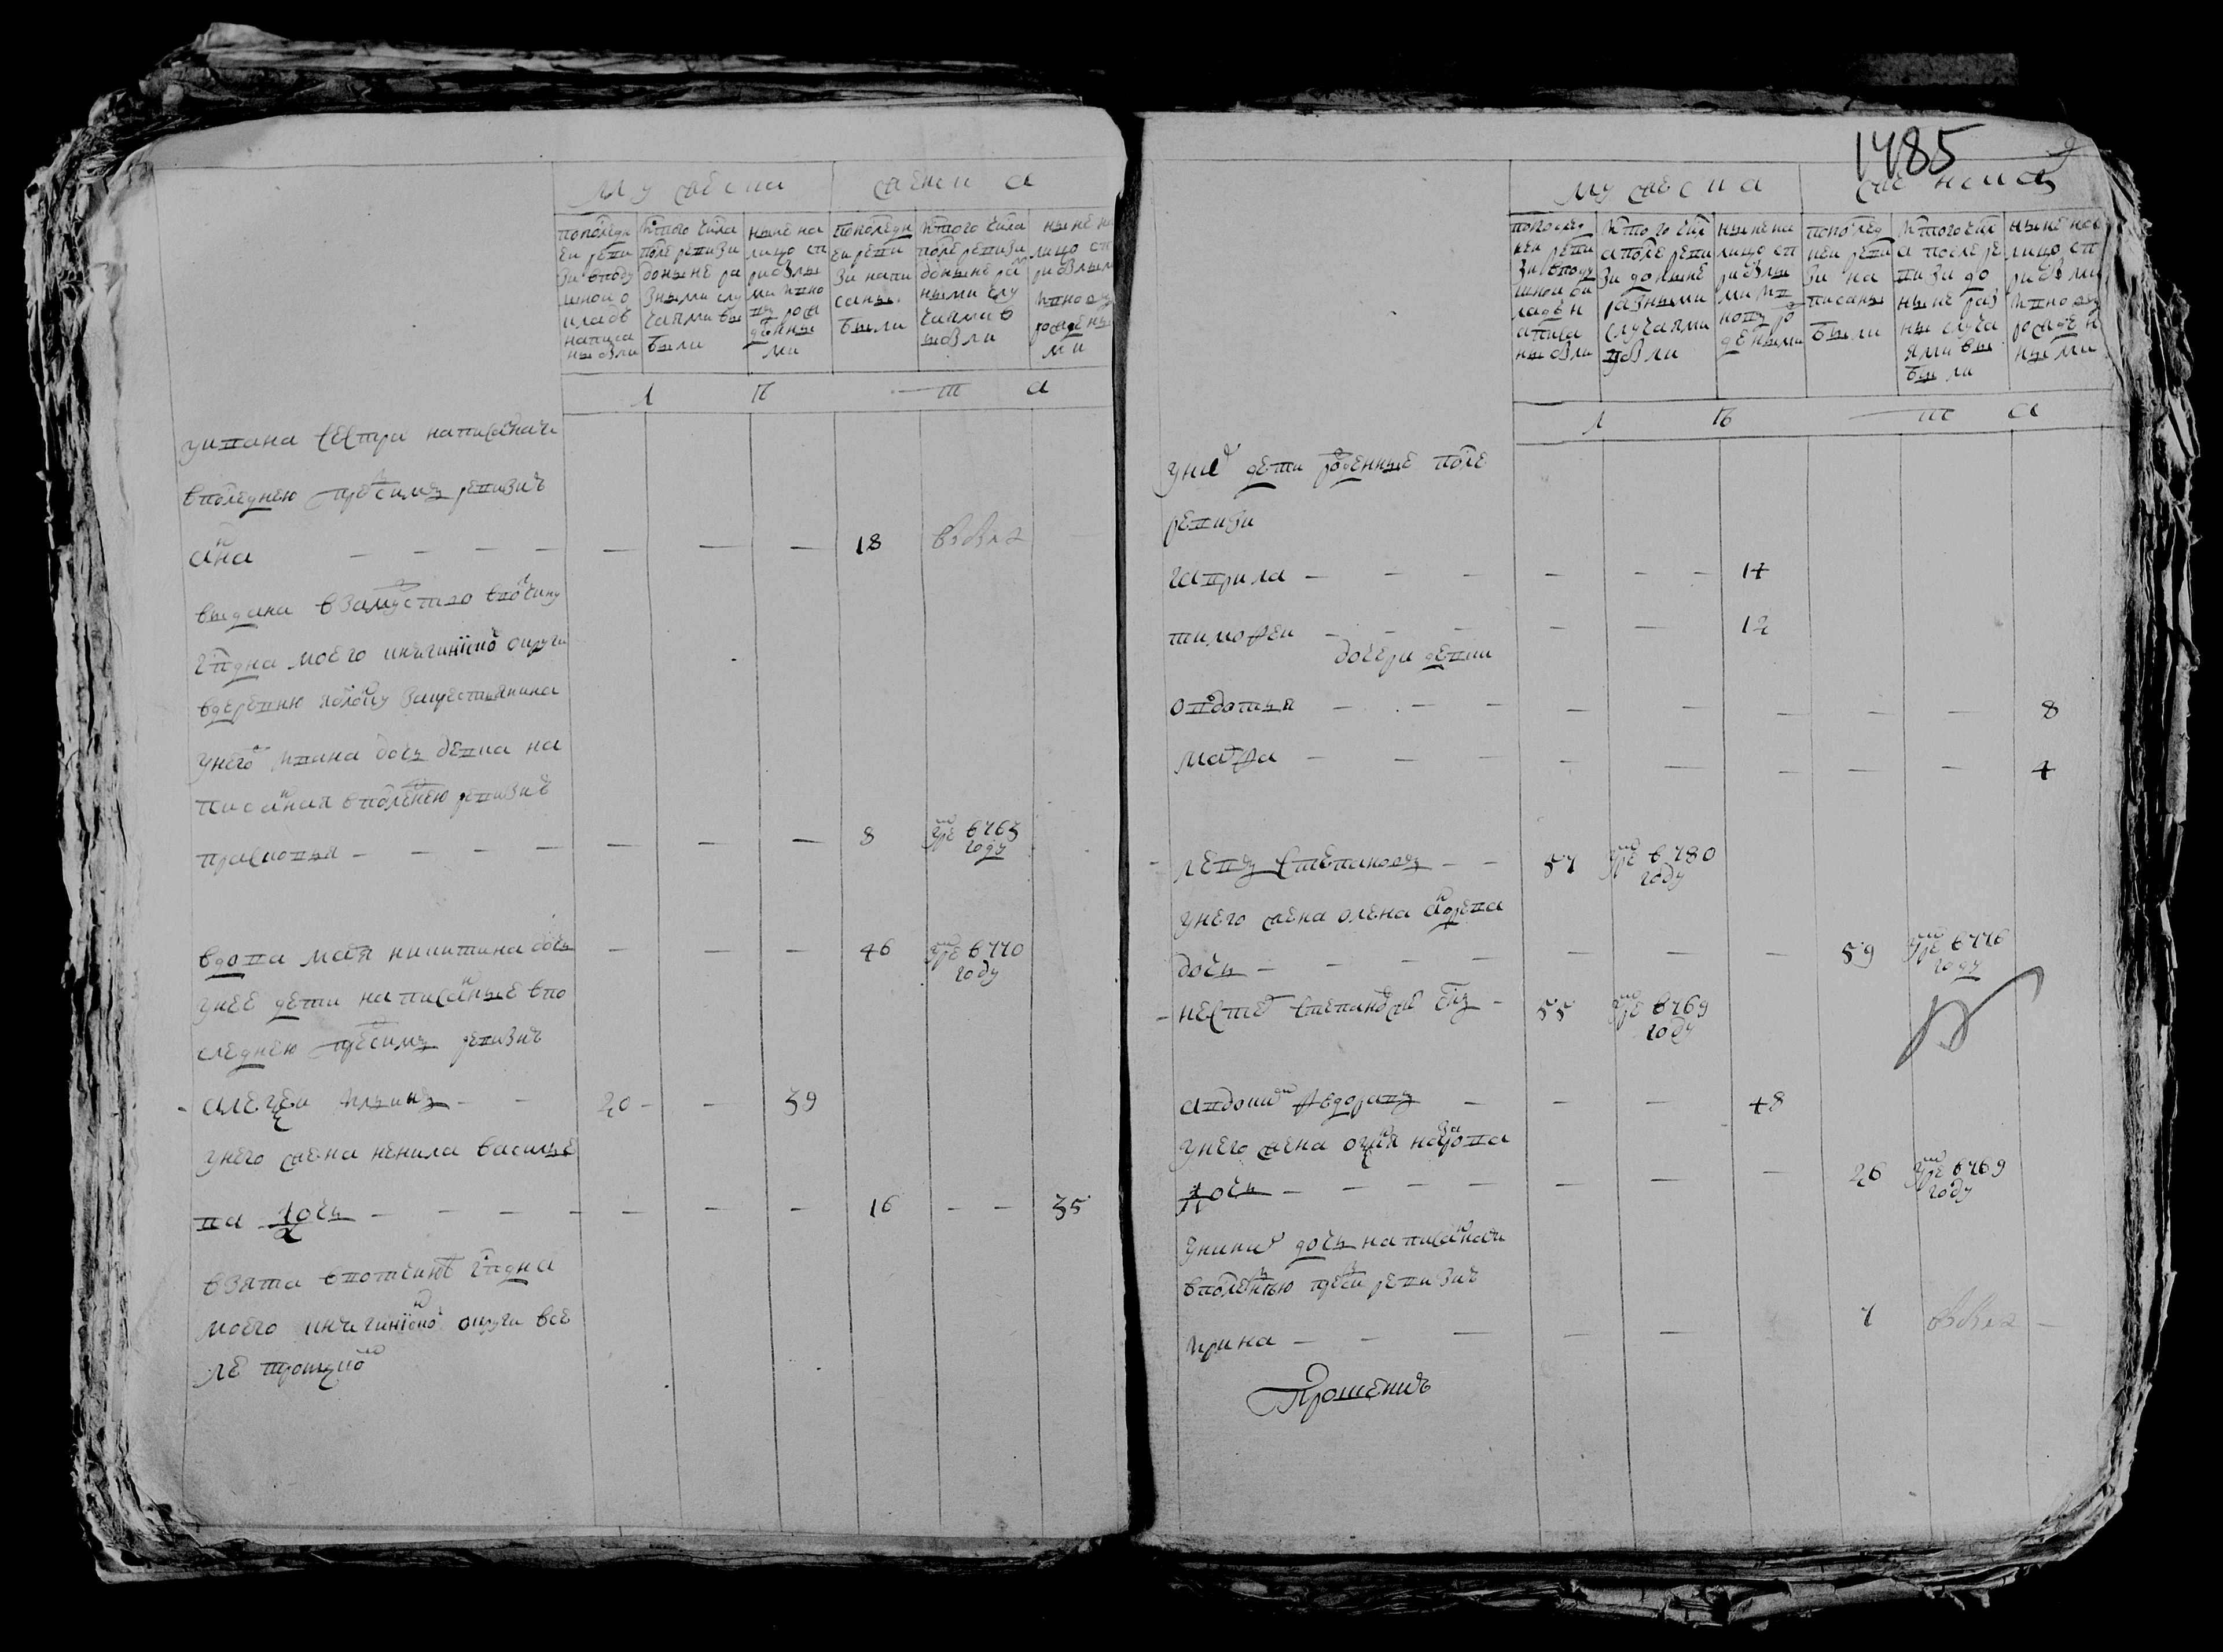 мужеска
женска
пополедн
еи реви
зи вподу
шной о
кладъ
написа
ны были
ис того числа
после ревизи
доныне ра
зными слу
чаями вы
были
ныне на
лицо сп
рибылы
ми и вно
вь рож
денны
ми
пополедн
еи реви
зи напи
саны
были
ис того числа
после ревизи
доныне раз
ными слу
чаями в
ыбыли
ныне на
лицо сп
рибылым
и вновь
рожденны
ми
л ѣ т а
у ивана сестра написаная
вполеднею пред симъ ревизию
анна — — — — — — — 18 выбыла
выдана взамужство вотчину
гпдна моего округи
вдеревню за крестьянина
у него ивана дочь девка на
писанная вполеднею ревизию
прасковья — — — — — — — 8 умре в 763 году
вдова марья никитина дочь — — — 46 умре в 770 году
у нее дети написанные впо
следнею пред симъ ревизию
алексеи ильинъ — — 20 — — 39
у него жена ненила василье
ва дочь — — — — — — — 16 — — 35
взята гпдна
моего округи все
ле троицкомъ
1485
9
мужеска
женска
последн
неи реви
зи вподу
шной ок
ладъ н
аписа
ны были
ис того числ
а после реви
зи до ныне
разными
случаями
выбыли
ныне на
лицо сп
рибылы
ми и в
новь ро
ждеными
пополед
неи реви
зи на
писаны
были
ис того числ
а после ре
визи до
ныне раз
ны случа
ями вы
были
ныне на
лицо сп
рибылы
и вновь
рожден
ными
л ѣ т а
у них дети рожденные после
ревизи
гаврила — — — — — — 17
тимофеи — — — — — 12
дочери девки
овдотья — — — — — — — — 8
марфа — — — — — — — — 4
левъ степановъ — — 57 умре в 780 году
у него жена олена андреева
дочь — — — — — — — 59 умре в 776 году
нестер степановъ — 55 умре в 769 году
авдоким федоровъ — — — 48
у него жена назарова
дочь — — — — — — — — 26 умре в 769 году
у них дочь написаная
вполеднею пред сим ревизию
ирина — — — — — 7 выбыла —